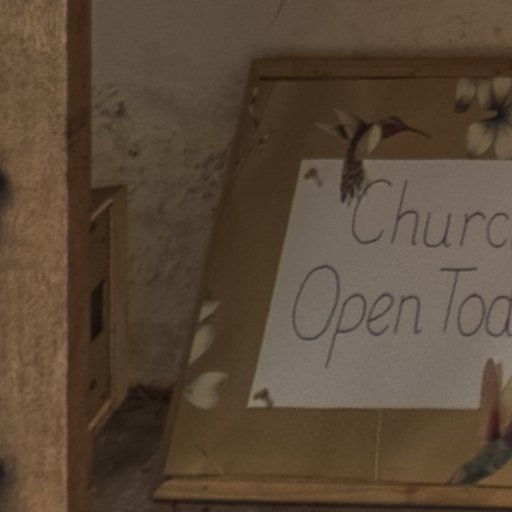 Churc
Open Tod